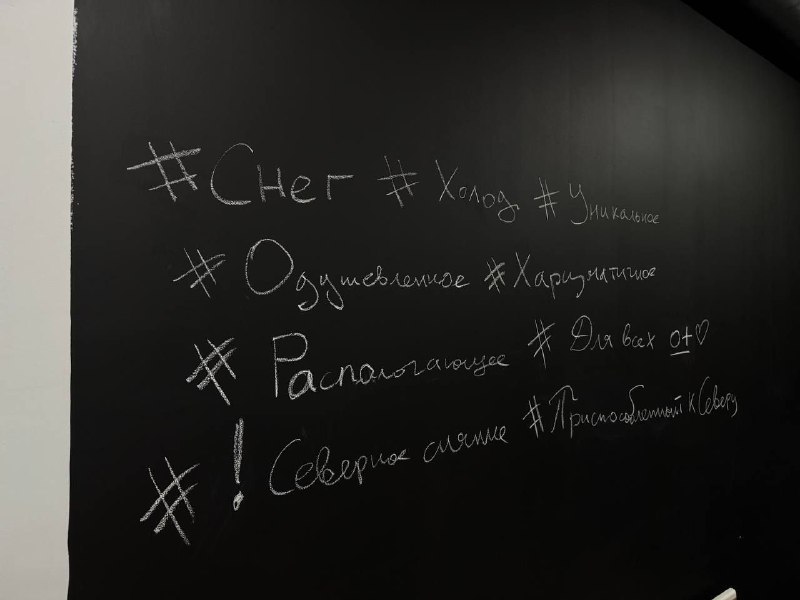 #Снег # Холод # Уникальное
# Одушевленное #Харизматичное
# Распологающее # Для всех 0+♡
# ! Северное сияние #Приспособленный к Северу